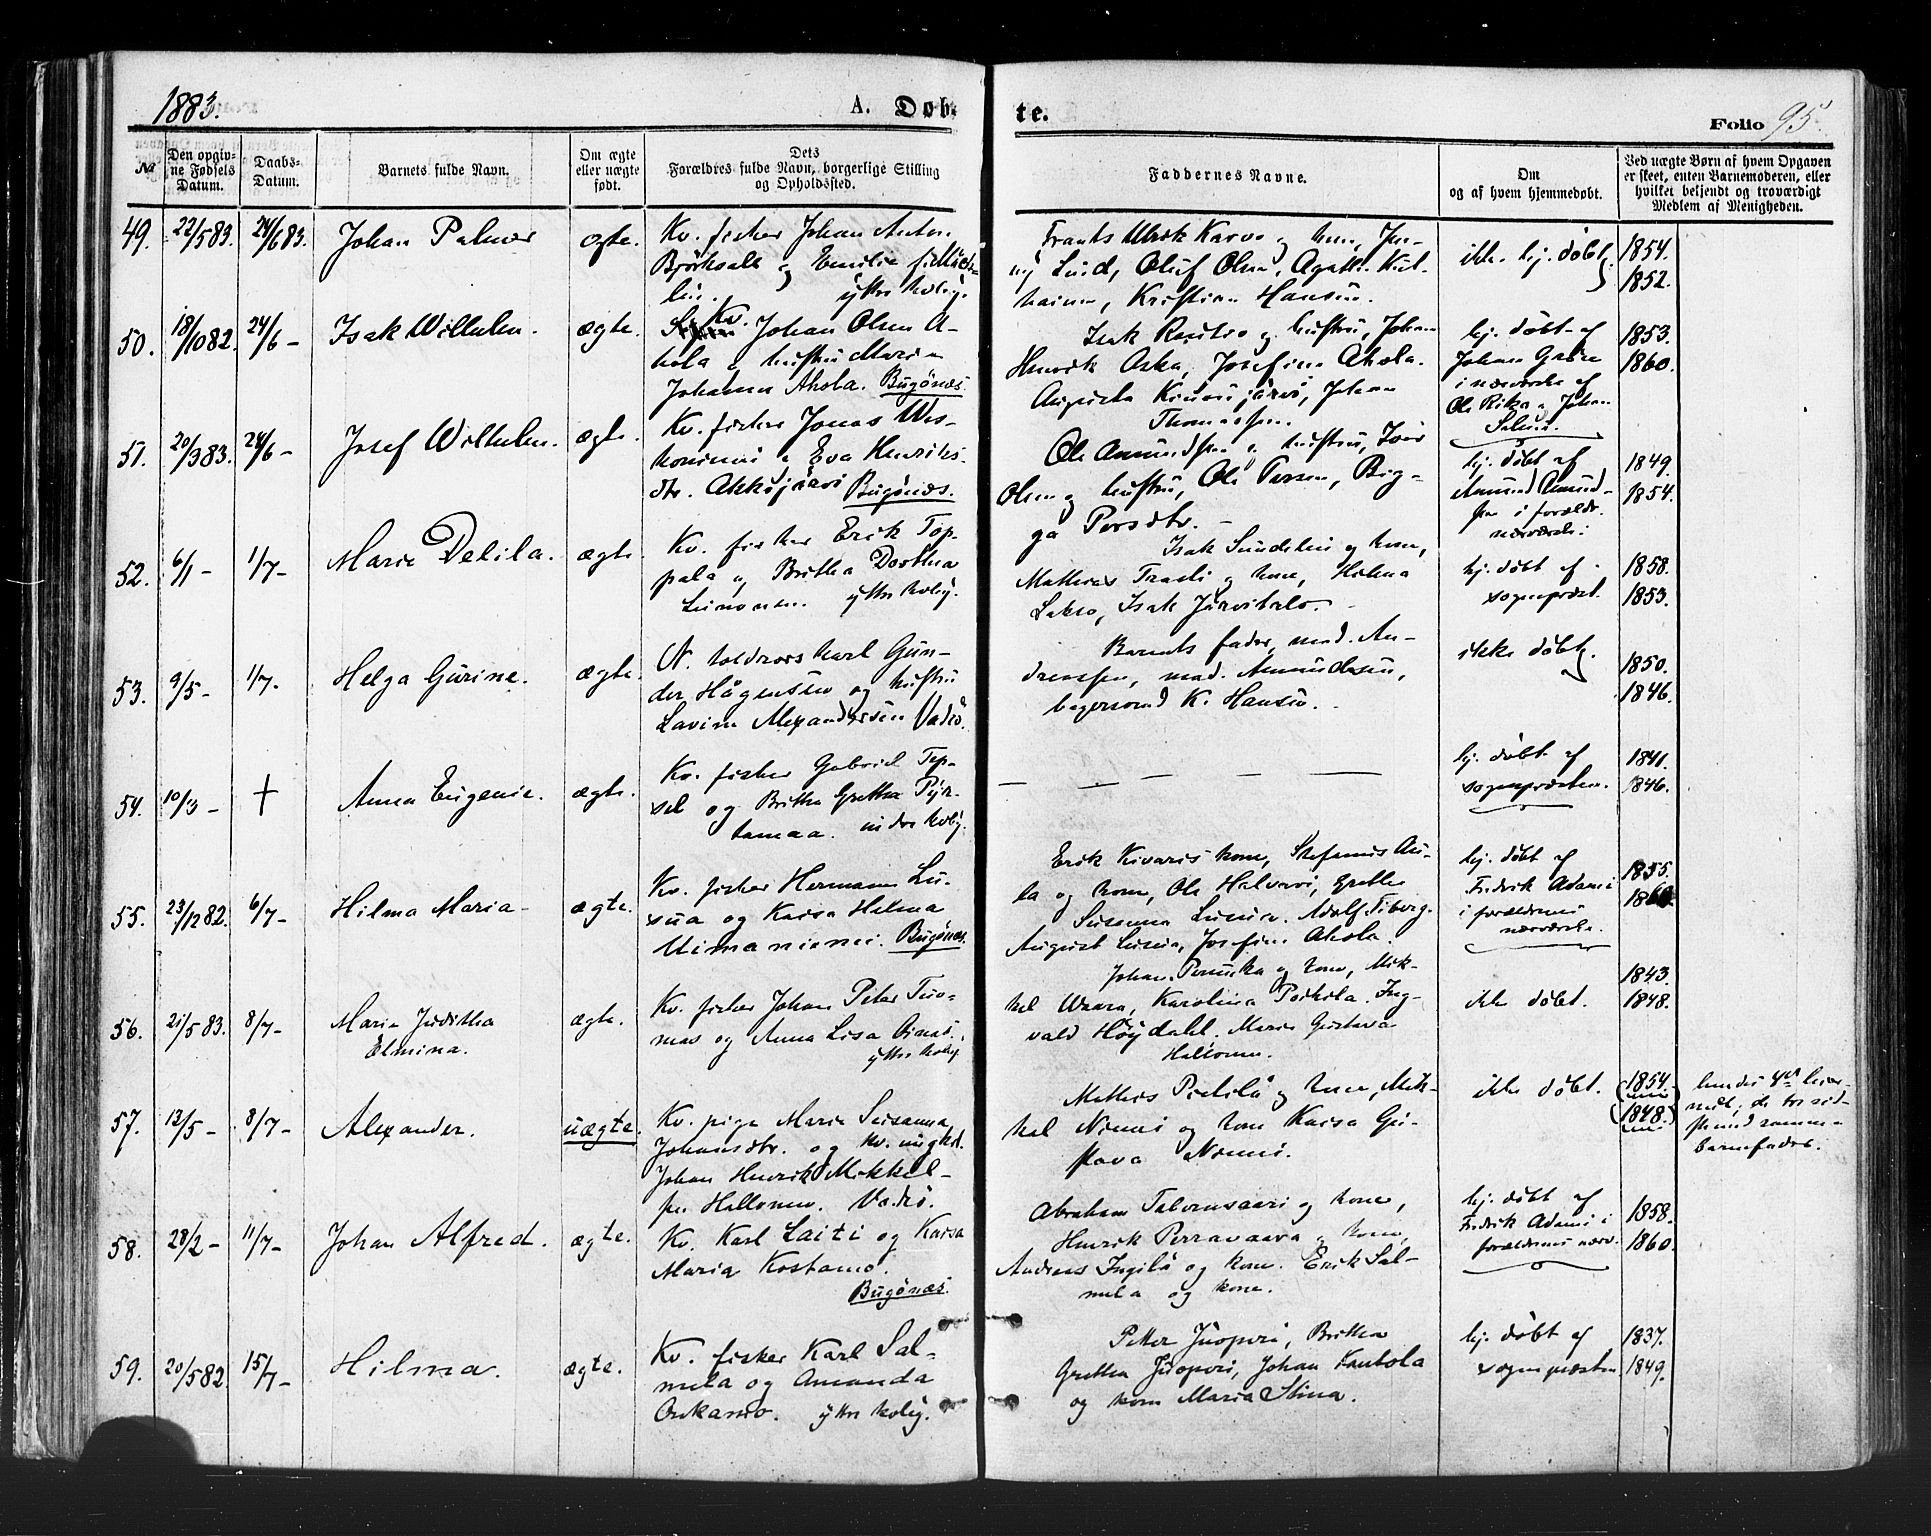 1883.
A. Døb-
te.
Folio 95.
№
Den opgiv-
ne Fødsels
Datum.
Daabs-
Datum.
Barnets fulde Navn.
Om ægte
eller uægte
født.
Dets
Forældres fulde Navn, borgerlige Stilling
og Opholdssted.
Faddernes Navne.
Om
og af hvem hjemmedøbt.
Ved uægte Børn af hvem Opgaven
er skeet, enten Barnemoderen, eller
hvilket bekjendt og troværdigt
Medlem af Menigheden.
49. 22/5 83. 24/6 83. Johan Palmer ægte.
Kv. fisker Johan Anton
og Emilie
yttre kvbÿ.
Frants Ulrik Karvo og kone,
Lund, Oluf Olsen, Agatha
Kristian Hansen.
ikke hj. døbt.
1854.
1852.
50. 18/10 82. 24/6 – Isak Wilhelm. ægte.
Kv. Johan Olsen A-
kola og hustru Maria
Johanna Akola. Bugønæs.
Isak og hustru, Johan
Henrik Aska, Josefine Akola.
Augusta Kinnujärvi, Johan
Thomassen.
hj. døbt af
Johan
i nærværelse af
Ole Johan
1853.
1860.
51. 20/3 83. 24/6 – Josef Wilhelm. ægte.
Kv. fisker Jonas
og Eva Henriks-
dtr. Akkojärvi Bugønæs.
Ole Amundsen og hustru, Iver
Olsen og hustru, Ole Persen, Big-
ga Persdtr. –
hj. døbt af
Amund Amund-
sen i forældr.
nærværelse.
1849.
1854.
52. 6/1 – 1/7 – Maria Delila. ægte.
Kv. fisker Erik Top-
pala og Britha Dorthea
yttre kvbÿ.
Isak Sundelin og kone,
Mathias og kone, Hilma
Lakso, Isak Järvitalo. –
hj. døbt af
sognepræst.
1858.
1853.
53. 9/5 – 1/7. Helga Gurine. ægte.
N. toldrors karl Gun-
der Hågensen og hustru
Lavina Alexandersen Vadsö.
Barnets fader, mad. An-
dreassen, mad. Amundsen,
bagersvend K. Hansen.
ikke døbt.
1850.
1846.
54. 10/3 – + Anna Eugenie. ægte.
Kv. fisker Gabriel Tep-
sel og Britha Gretha Pÿk-
tamaa. indre kvbÿ.
– – – – – –
hj. døbt af
sognepræsten.
1841.
1846.
55. 23/12 82. 6/7 – Hilma Maria – ægte.
Kv. fisker Hermann Lu-
sua og Kaisa Helma
Uimaniemi. Bugønæs.
Erik Kivaris kone, Stefanus Au-
la og kone, Ole Halvari, Grethe
Susanna Lusua. Adolf Fiborg.
August Lusua, Josefine Akola.
hj. døbt af
Fredrik Adami
i forældrenes
nærværelse.
1855.
1860.
56. 21/5 83. 8/7 – Maria Juditha
Elmina. ægte.
Kv. fisker Johan Peter Tuo-
mas og Anna Lisa
yttre kvbÿ.
Johan og kone, Mik-
kel Waara, Karolina Poikela. Ing-
vald Höÿdahl. Maria Gustava
Hallonen.
ikke døbt.
1843.
1848.
57. 12/5 – 8/7 – Alexander. uægte.
Kv. pige Maria Susanna
Johansdtr. og kv. ungkrl.
Johan Henrik Mikkel-
sen Hallonen. Vadsö.
Mathis Pietilä og kone, Mik-
kel Niemi og kone Kaisa Gu-
stava Niemi.
ikke døbt.
1854.
1848.
hendes 4de leier-
maal, de tre sid-
ste med samme
barnefader.
58. 28/2 – 11/7 – Johan Alfred. ægte.
Kv. Karl Laiti og Kaisa
Maria Kostamo.
Bugønæs.
Abraham Talvensaari og kone,
Henrik Perravaara og kone,
Andreas Ingilä og kone. Erik Sal-
mela og kone.
hj. døbt af
Fredrik Adami i
forældrenes nærv.
1858.
1860.
59. 20/5 82 15/7 – Hilma. ægte.
Kv. fisker Karl Sal-
mela og Amanda
Onkamo. yttre kvbÿ.
Petter Juopori, Britha
Gretha Juopori, Johan Kantola
og kone Maria Stina.
hj. døbt af
sognepræsten
1837.
1849.